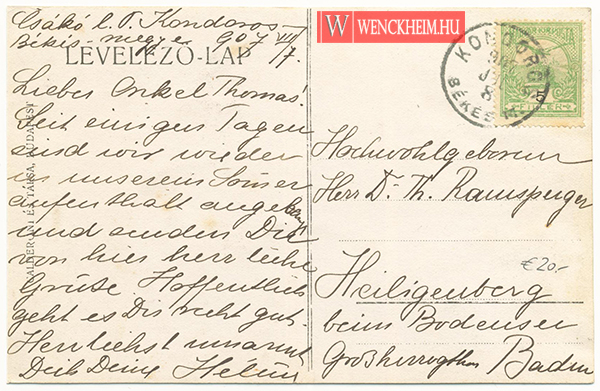 WENCKHEIM.HU
Csákó u. P. Kondoros
Békés-megye 907 VII/7.
LEVELEZŐ-LAP
Lieber Onkel Thomas!
Seit einigen Tagen
sind wir wieder
in unserem Somer
aufenthalt angekomt
und senden Dir
von hier herzliche
Grüße. Hoffentlich
geht es Dir recht gut.
Herzlichst umarmt
Dich Deine
KONDOROS
907 JUL
8
BÉKÉS M.
5
FILLÉR
Hochwohlgeboren
Herr Dr. Th. Ramsperger
€20.-
Heiligenberg
beim Bodensee
Großherzogthum Baden
BUDAPEST